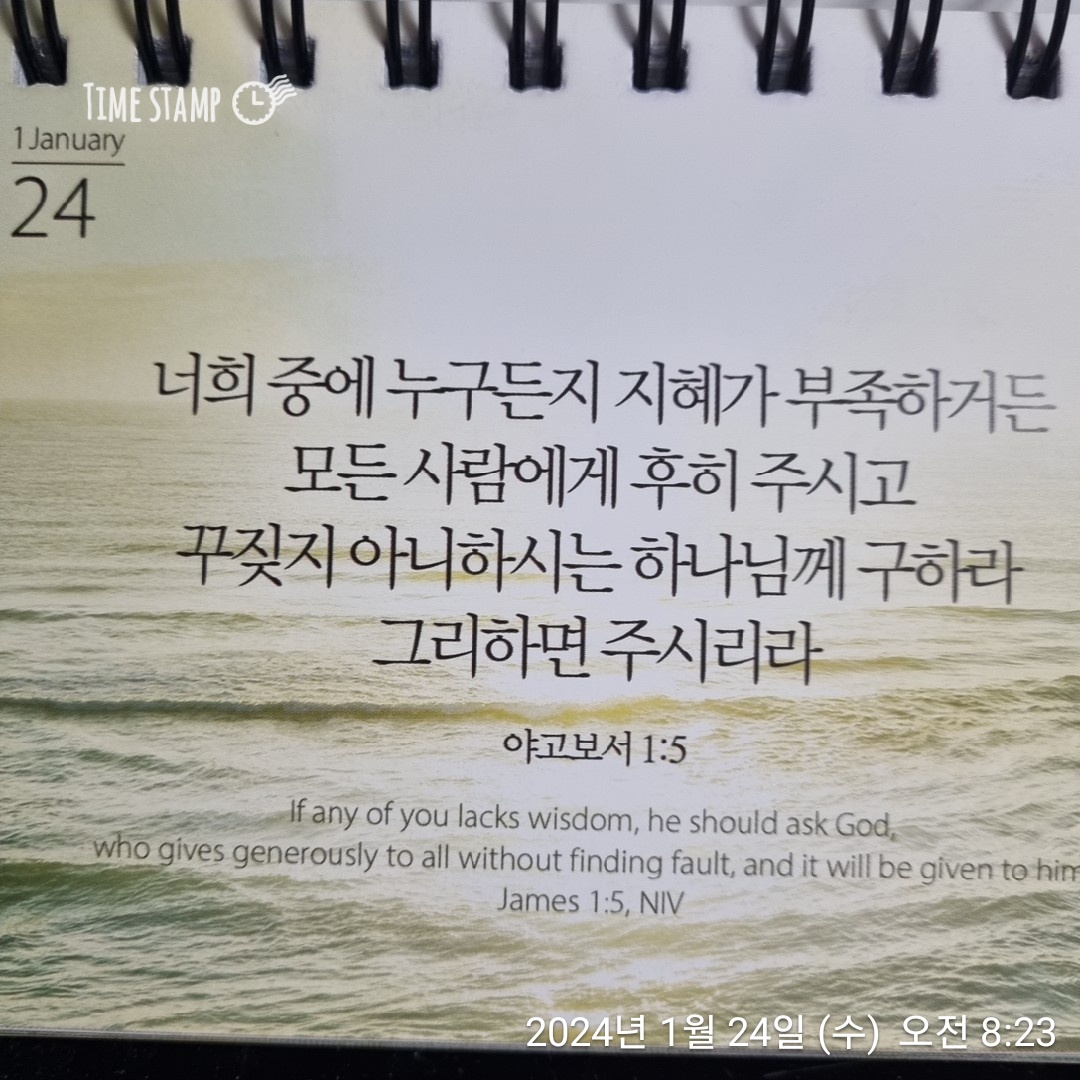 TIME STAMP
1 January
24
너희 중에 누구든지 지혜가 부족하거든
모든 사람에게 후히 주시고
꾸짖지 아니하시는 하나님께 구하라
그리하면 주시리라
야고보서 1:5
If any of you lacks wisdom, he should ask God,
who gives generously to all without finding fault, and it will be given to him
James 1:5, NIV
2024년 1월 24일 (수) 오전 8:23